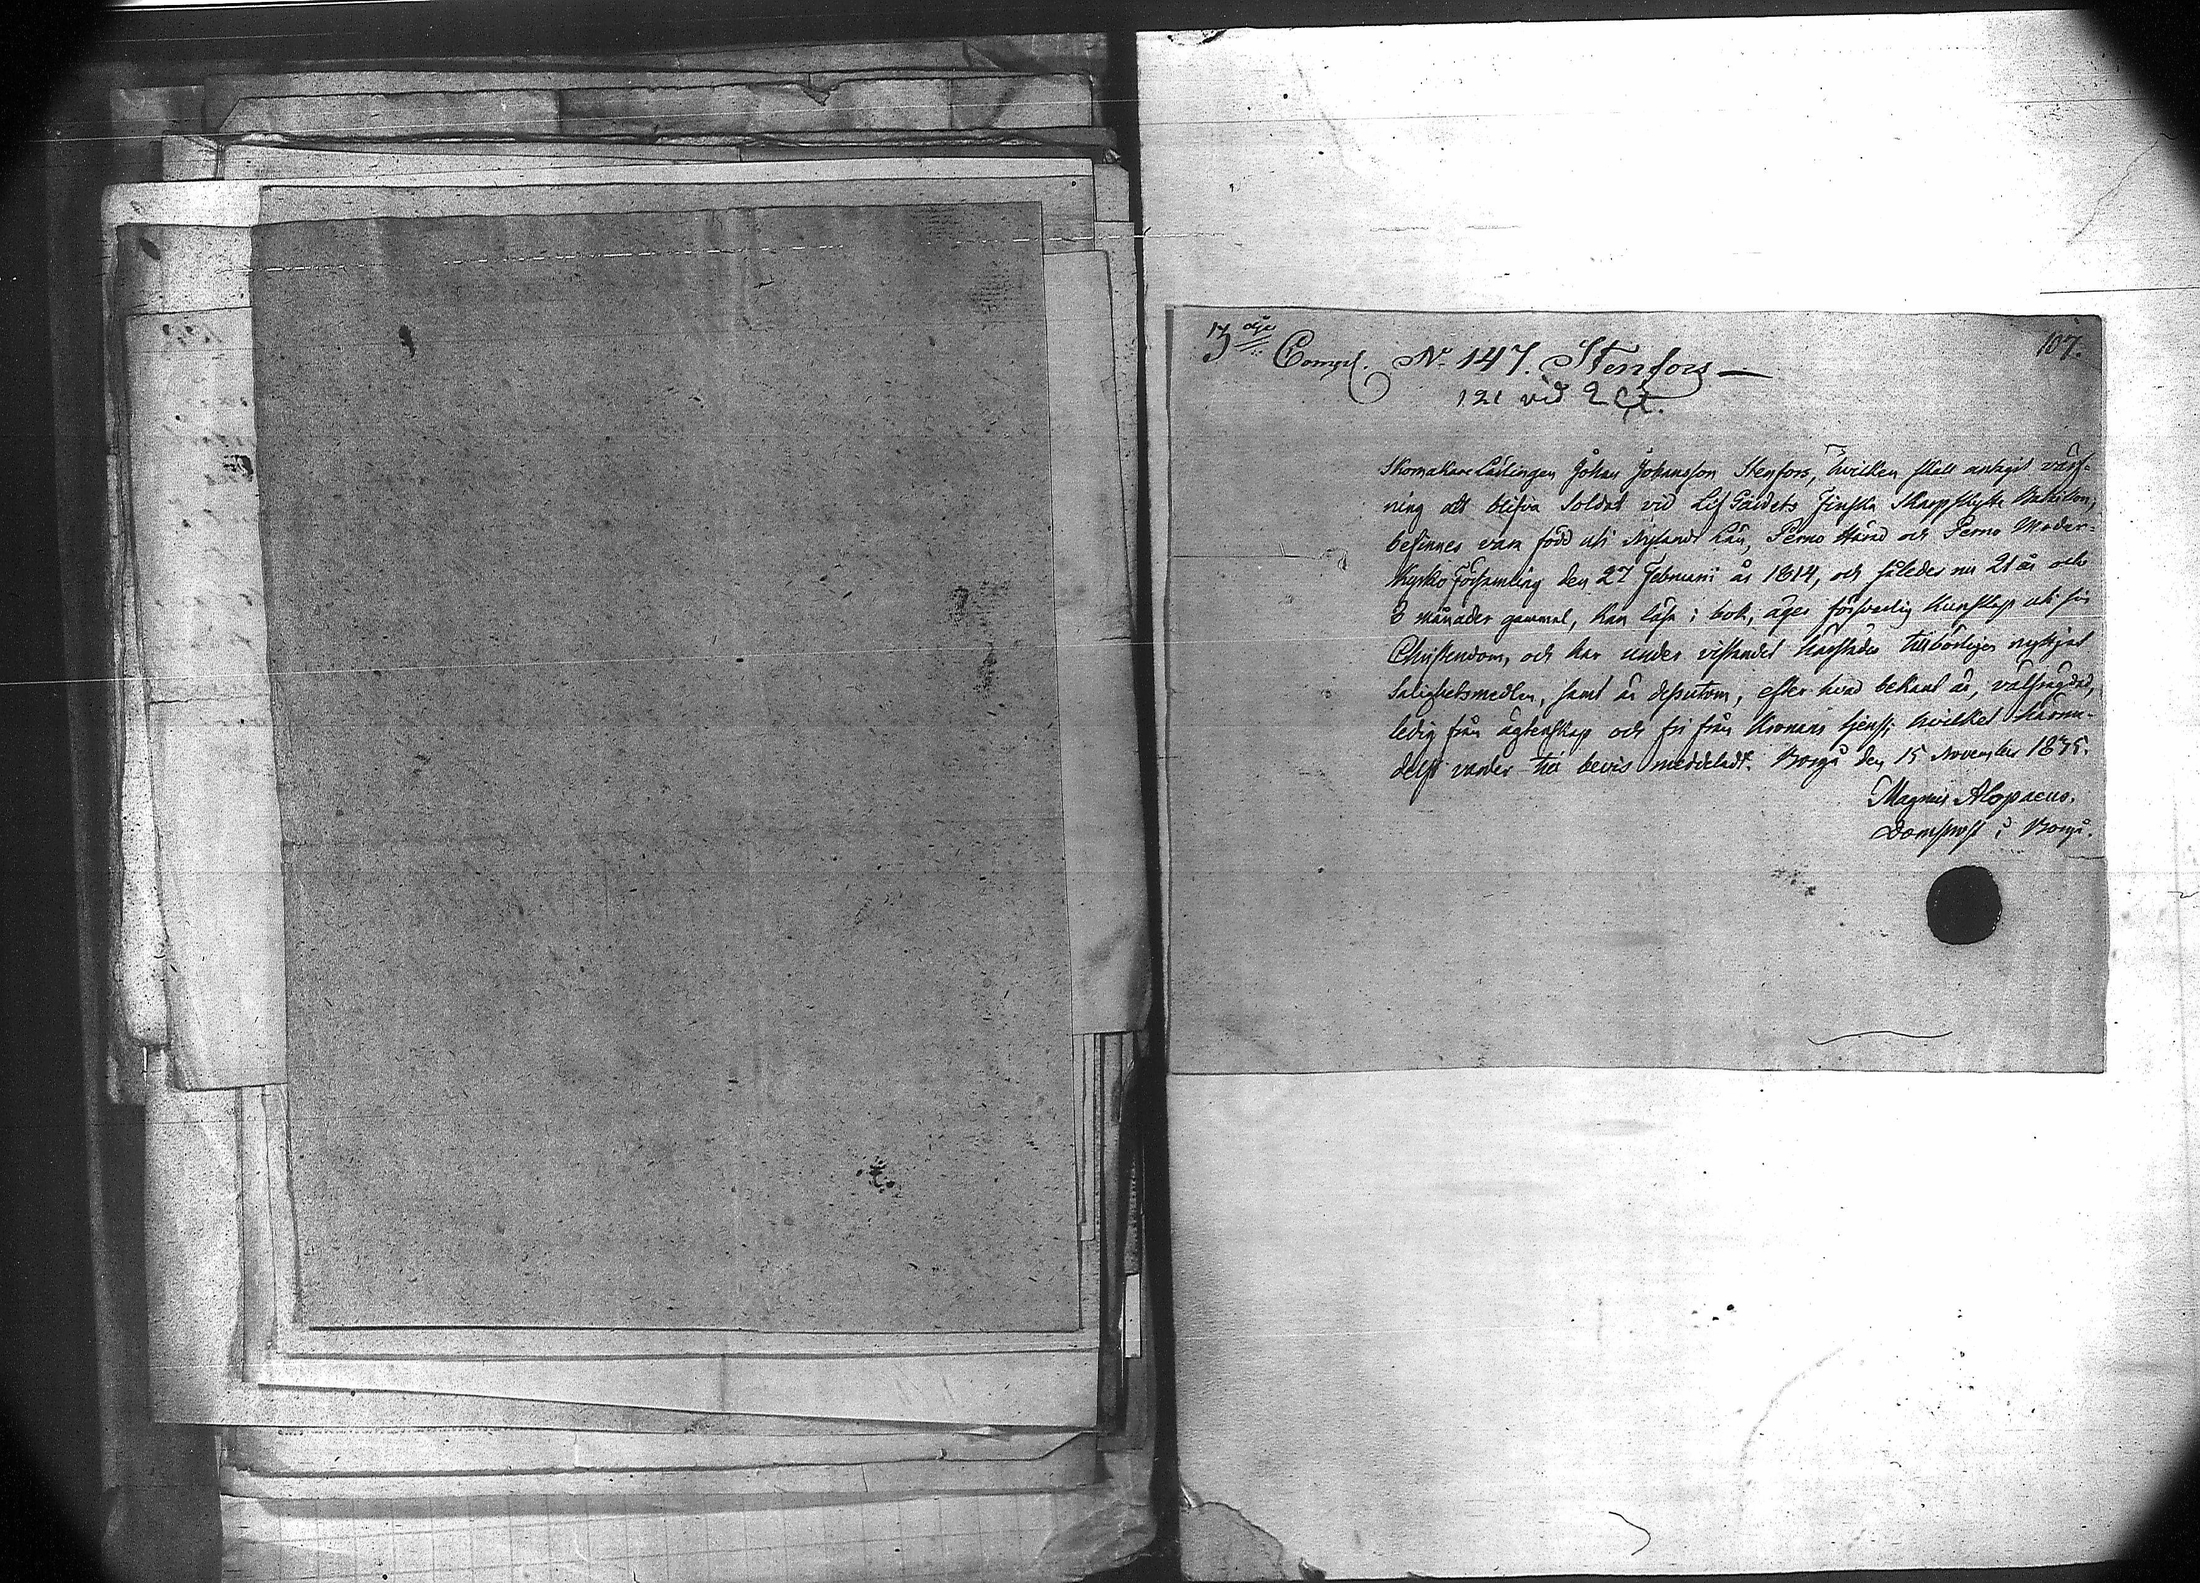 3dje Compl. No 147. Stenfors — 107.
121 vid 2 C.
Skomakare Lärlingen Johan Johansson Stenfors, hvilken skall antagit värf-
ning att blifva Soldat vid Lif Gardets Finska Skarpskytte Bataillon,
befinnes vara född uti Nylands Län, Perno Härad och Perno Moder-
Kyrko Församling den 27 Februari år 1814, och således nu 21 år och
8 månader gammal, kan läsa i bok, äger försvarlig Kunskap uti sin
Christendom, och har under vistandet härstädes tillbörligen nyttjat
Salighetsmedlen, samt är dessutom, efter hvad bekant är, välfrägdad,
ledig från ägtenskap och fri från Kronans tjenst; hvilket härme-
delst varder till bevis meddeladt. Borgå den 15 November 1835.
Magnus Alopaeus.
Domprost i Borgå.